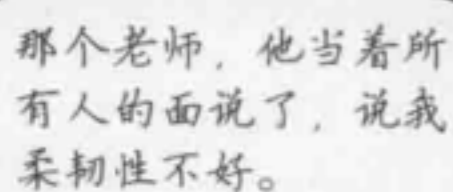 那个老师，他当着所
有人的面说了，说我
柔韧性不好。